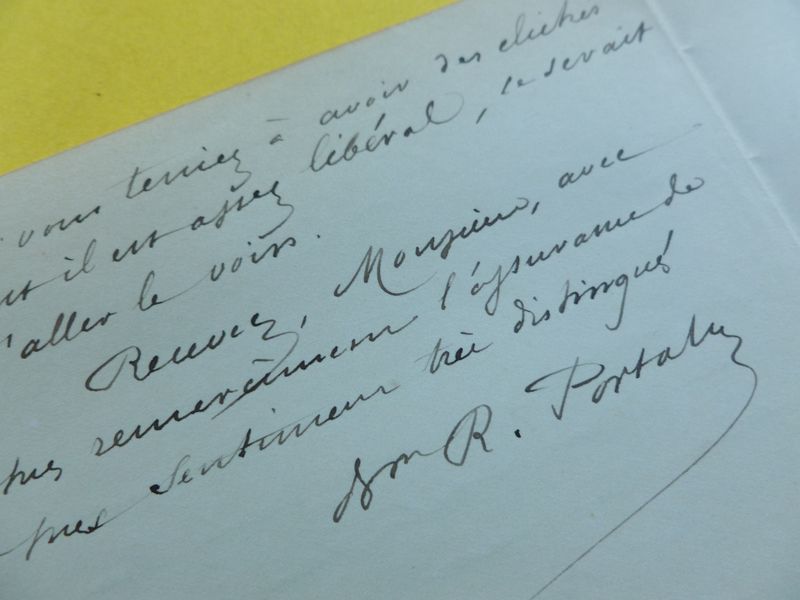 vous teniez à avoir des clichés
il est assez libéral, ce serait
d'aller le voir.
Recevez, Monsieur, avec
mes remerciements l'assurance de
mes sentiments très distingués
R. Portalis